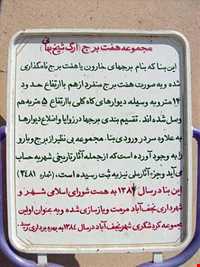 مجموعه هفت برج (ارگ شیخ بها)
این بنا که بنام برجهای خارون یا هفت برج نامگذاری
شده و به صورت هفت برج منفرد از هم با ارتفاع حدود
۱۴ متر و به وسیله دیوارهای کاه گلی با ارتفاع ۵ متر به هم
وصل شده اند. تقسیم بندی برجها در زوایا و اضلاع دیوارها
به علاوه سر در ورودی بنا، مجموعه بی نظیر از برج و بارو
را به وجود آورده است که از جمله آثار تاریخی شهر به حساب
می آید و جزء آثار ملی نیز به ثبت رسیده است. (شماره ۲۴۸۱)
این بنا در سال ۱۳۸۲ به همت شورای اسلامی شهر و
شهرداری نجف آباد مرمت و بازسازی شده و به عنوان اولین
مجموعه گردشگری شهر نجف آباد در سال ۱۳۸۴ به بهره برداری رسید.